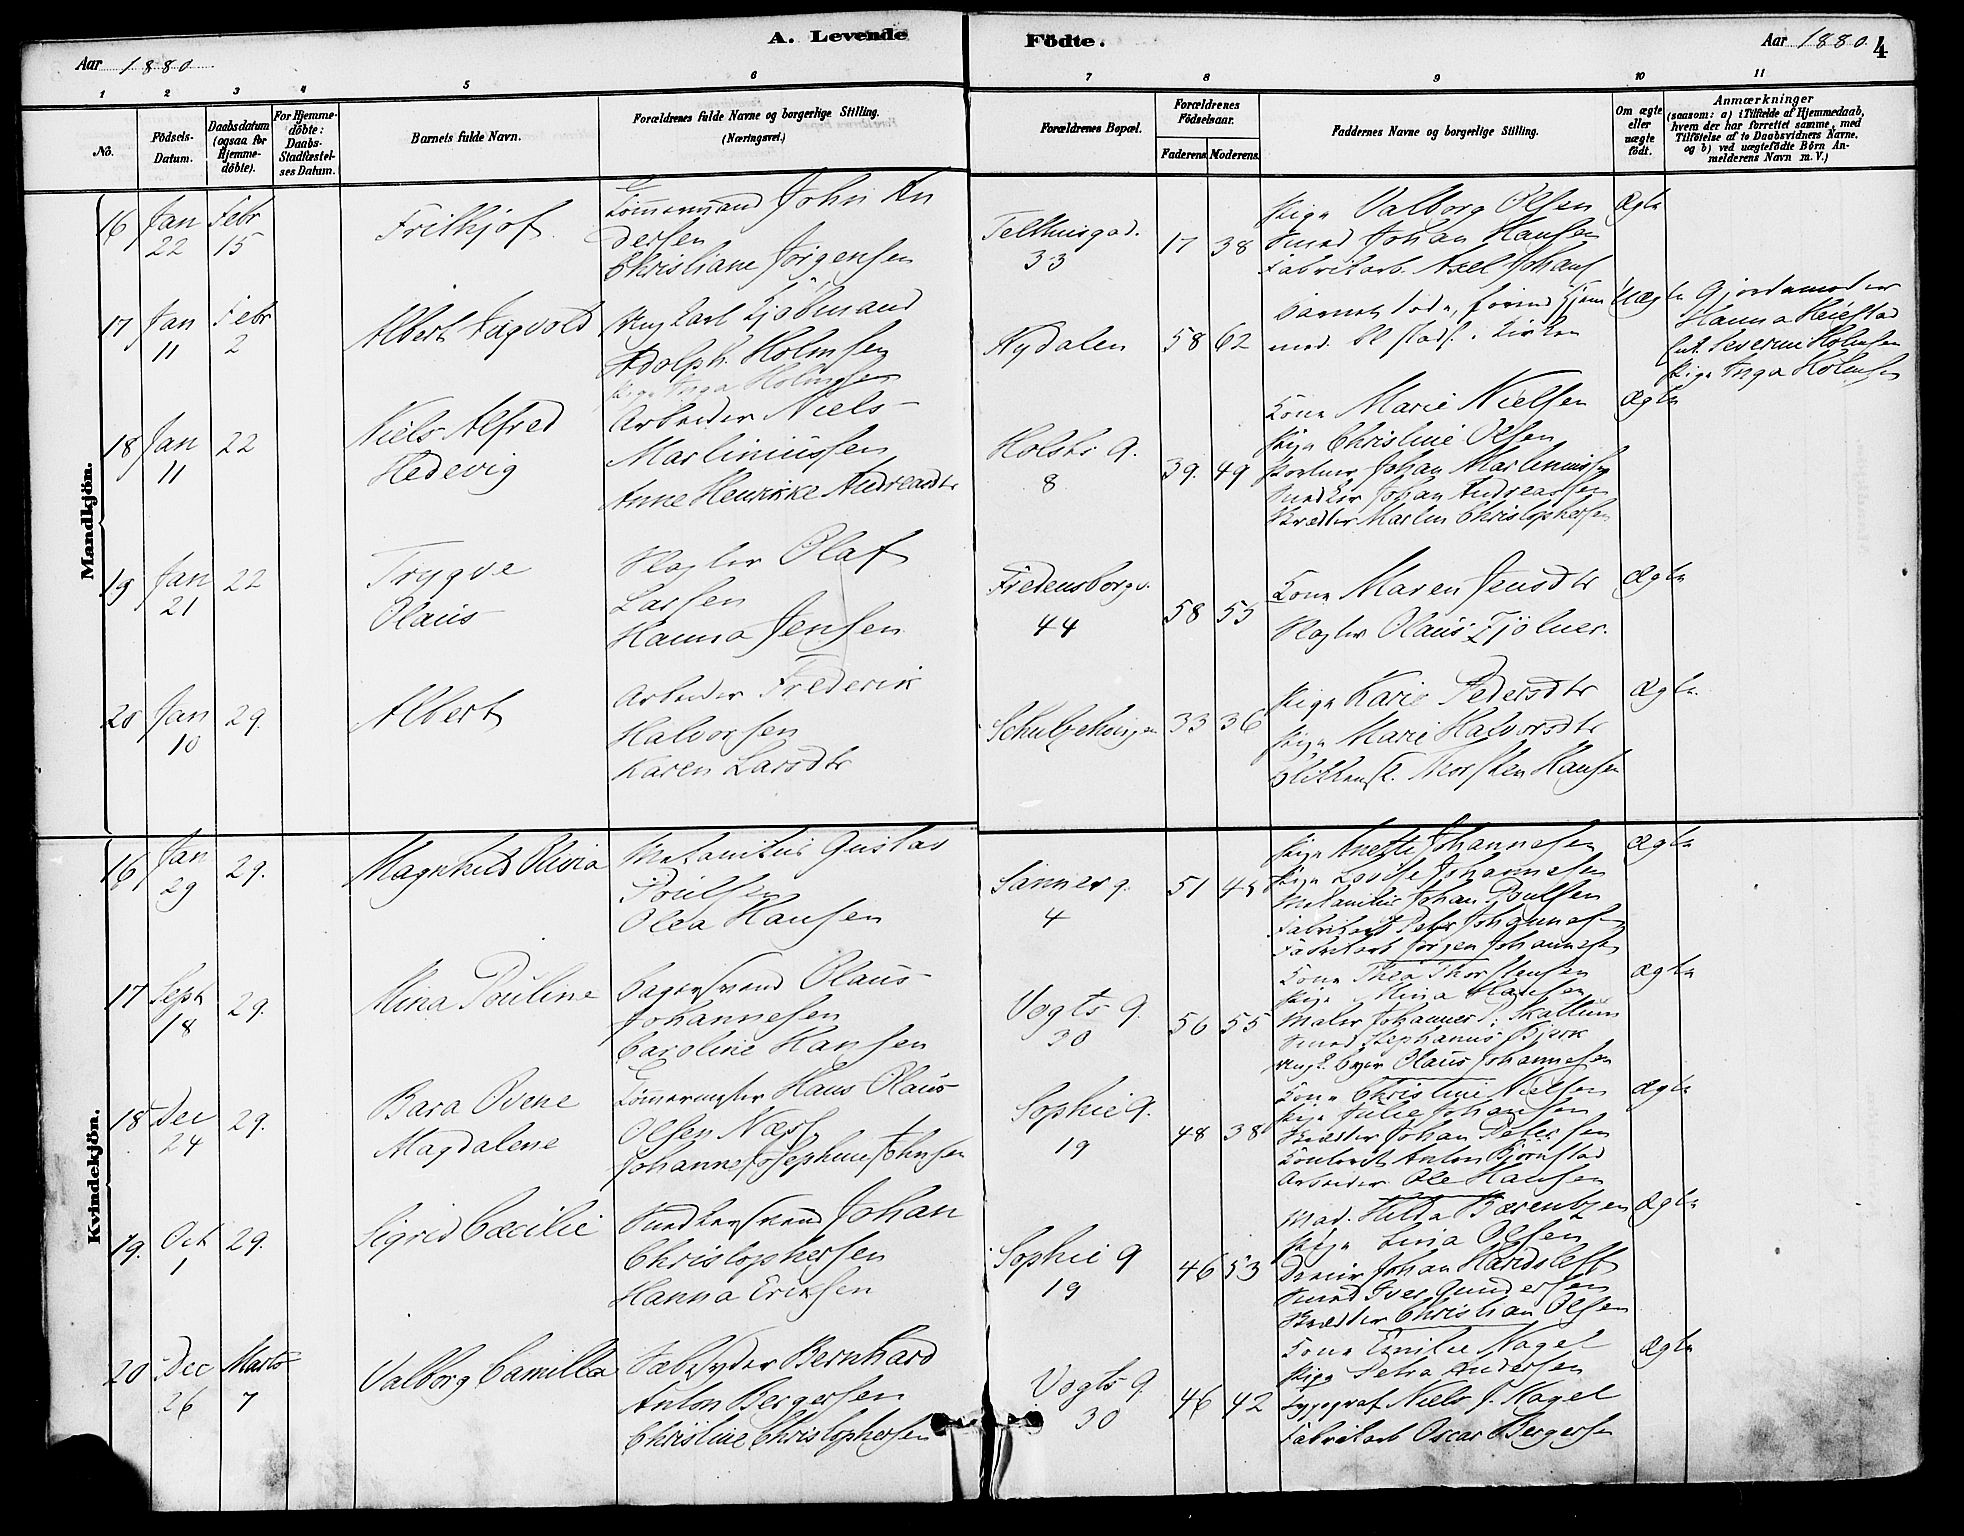 A. Levende Födte.
Aar 1880.
Aar 1880. 4
1 2 3 4 5 6 7 8 9 10 11
No.
Födsels-
Datum.
Daabsdatum
(ogsaa for
Hjemme-
döbte).
For Hjemme-
döbte:
Daabs-
Stadfæstel-
ses Datum.
Barnets fulde Navn.
Forældrenes fulde Navne og borgerlige Stilling.
(Næringsvei.)
Forældrenes Bopæl.
Forældrenes
Födselsaar.
Faderens Moderens
Faddernes Navne og borgerlige Stilling.
Om ægte
eller
uægte
födt.
Anmærkninger
(saasom: a) i Tilfælde af Hjemmedaab,
hvem der har forrettet samme, med
Tilföielse af to Daabsvidners Navne.
og b) ved uægtefödte Börn An-
melderens Navn m. V.)
Mandkjön.
16 Jan 22 Febr 15
Frithjof
Tömermand John An
dersen
Christiane Jörgensen
Telthusgad.
33
17 38
Pige Valborg Olsen
Smed Johan Hansen
Fabrikarb. Axel Johans
Ægte
17 Jan 11 Febr 2
Albert Ingvold
Ung Karl
Adolph Holmsen
Pige Inga Holmsen
Nydalen
58 62
Barnet döde, förend Hjem
Uægte
Gjordemoder
Hanna
Severine Holmsen
Pige Inga Holmsen
18 Jan 11 22
Niels Alfred
Hedevig
Arbeider Niels
Martiniussen
Anne Henrikke Andreasdtr
Holsts g.
8
39. 49
Kone Marie Nielsen
Pige Christine Olsen
Portner Johan Martiniussen
Snedker Johan Andreassen
Skrædder Martin Christophersen
Ægte
19 Jan 21 22
Trygve
Olaus
Slagter Olaf
Larsen
Hanna Jensen
Fredensborgv.
44
58 55
Kone Maren Jensdtr
Slagter Olaus Fjölner.
Ægte
20 Jan 10 29.
Albert
Arbeider Frederik
Halvorsen
Karen Larsdtr
Schultzehaugen
33 36
Pige Karie Pedersdtr
Pige Marie Halvorsdtr
Blikkensl. Thorsten Hansen
Ægte
Kvindekjön.
16 Jan 29 29.
Magnhild Olivia
Mekanikus Gustav
Poulsen
Olea Hansen
Sanner g.
4
51 45
Pige Anette Johannesen
Pige Lovise Johannesen
Mekanikus Johan Poulsen
Fabrikarb Peter Johannesen
Fabrikarb Jörgen Johannesen
Ægte
17 Sept 18 29.
Mina Pouline
Bagersvend Olaus
Johannesen
Caroline Hansen
Vogts g.
30
56 55
Kone Thea Thorstensen
Pige Mina Hansen
Maler Johannes P. Skallum
Smed Stephanus Bjerk
Ungk. Bager Olaus Johannesen
Ægte
18 Dec 24 29.
Bara Ovene
Magdalene
Tömermester Hans Olaus
Olsen Næss
Johanne Josephine Johnsen
Sophie g.
19
48 38
Kone Christine Nielsen
Pige Julie Johansen
Skrædder Johan Petersen
Kontorist Anton Bjørnstad
Arbeider Ole Hansen
Ægte
19. Oct 1 29.
Sigrid Cæcilie
Snedkersvend Johan
Christophersen
Hanna Eriksen
Sophie g
19
46 53
Mad. Hilda Bærentzen
Pige Lina Olsen
Johan Hardsleff
Smed Iver Gundersen
Skrædder Christian Olsen
Ægte
20 Dec 26 Marts 7
Valborg Camilla
Sæbesyder Bernhard
Anton Bergersen
Christine Christophersen
Vogts g.
30
46 42
Kone Emilie Nagel
Pige Petra Andersen
Typograf Niels J. Nagel
Fabrikarb Oscar Bergersen
Ægte